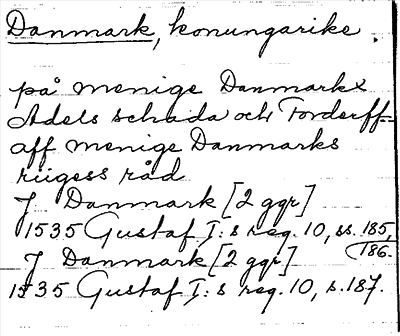 Danmark, konungarike.
på menige Danmarkx
Adels schada och Forderff-
aff menige Danmarks
riigess råd
J Danmark [2 ggr]
1535 Gustaf I:s reg. 10, ss. 185,
186.
J Danmark [2 ggr]
1535 Gustaf I:s reg. 10, s. 187.